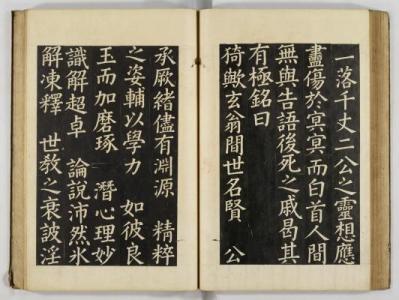 一落千丈二公之靈想應
盡傷於冥冥而白首人間
無與告語後死之戚曷其
有極銘曰
猗歟玄翁間世名賢 公
承厥緒儘有淵源 精粹
之姿輔以學力 如彼良
玉而加磨琢 潛心理妙
識解超卓 論說沛然氷
解凍釋 世教之衰詖淫